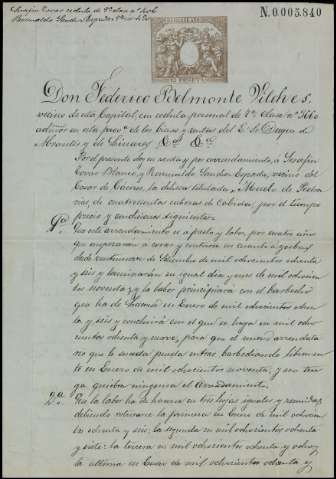 Serafin Tovar cedula de 9ª clase nº 406
N. 0.003.840
Don Federico Belmonte Vilches,
vecino de esta Capital, con cedula personal de 7ª clase nº 3660
admor en esta provª de las casas y rentas del E. S. Duque de
Abrantes y de Linares &ª &ª
Por el presente doy en renta y por arrendamiento, à Serafin
Tovar Blanco y Reimundo Sanchez Espada, vecinos del
Casar de Cáceres, la dehesa titulada Monte de
de cuatrocientas cabezas de cabida, por el tiempo
precio y condiciones siguientes
1ª Este arrendamiento es a pasto y labor, por cuatro años
que empezaran a correr y contarse en cuanto à yerbas
desde veintinueve de Setiembre de mil ochocientos ochenta
y seis y terminaran en igual dia y mes de mil ochocien
tos noventa; y la labor principiará con el barbecho
que ha de hacerse en Enero de mil ochocientos ochen
ta, y seis y concluirá con el que se haga en mil ocho
cientos ochenta y nueve, para que el nuevo arrendata
rio que le suceda pueda entrar barbechando libremen
te en Enero de mil ochocientos noventa, y sea ten
ga quiebra ninguna el arrendamiento.
2ª Esta labor ha de hacerse en tres hojas iguales y
debiendo relevarse la primera en Enero de mil ochocien
tos ochenta y seis; la segunda en mil ochocientos ochenta
y siete: la tercera en mil ochocientos ochenta y ocho y
la ultima en Enero de mil ochocientos ochenta y